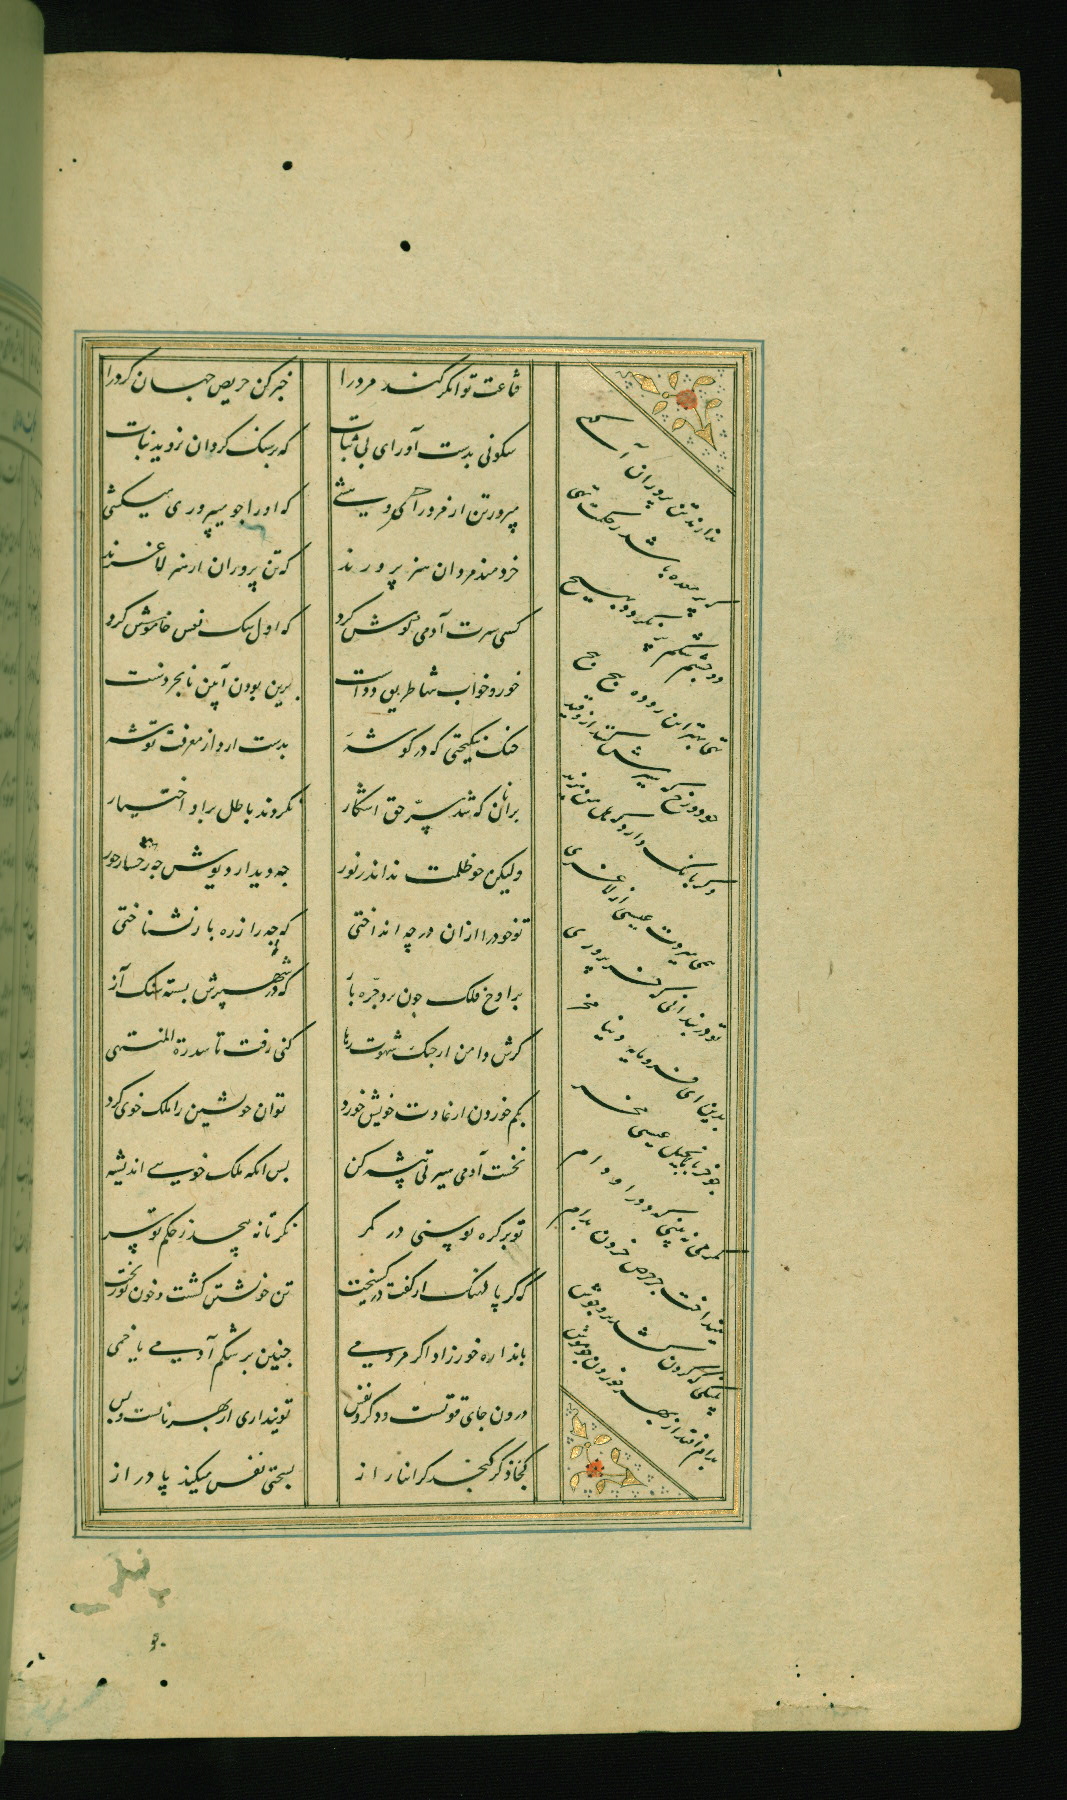 قناعت توانکر کند مرد را
خبر کن حریص جهان کرد را
سکونی بدست آور ای بی ثبات
که بر سنک کردان نروید نبات
مپرور تن ار مرد رای و هشی
که اورا جو میپروری میکشی
خردمند مردان هنر پرورند
که تن پروران از هنر لاغرند
کسی سیرت آدمی کوش کرد
که اول سک نفس خاموش کرد
خور و خواب تنها طریق دداست
برین بودن آیین نابخردست
خنک نیکبختی که در کوشه
بدست ارد از معرفت توشه
بران که شد سر حق اشکار
نکردند باطل برا و اختیار
ولیکن جو ظلمت نداند ز نور
جه دیدار دیوش جه رخسار حور
تو خود را ازان در چه انداختی
که جه را ز ره باز نشناختی
بر اوج فلک چون پرد جره باز
که در شهپرش بسته سنک آز
کرش دامن از جنک شهوت رها
کنی رفت تا سدرة المنتهی
بکم خوردن از عادت خویش خورد
توان خویشین را ملک خوی کرد
نخست آدمی سیرتی پیشه کن
بس انکه ملک خویی اندیشه
تو بر کره توسنی در کمر
نکر تا نه پیچد ز حکم تو سر
که کر پالهنک از کفت در کسیخت
تن خویشتن کشت و خون تو ریخت
باندازه خور زاد اکر مردمی
جنین بر شکم آدمی یا خمی
درون جای قوتست و ذکر و نفس
تو پنداری از بهر نانست و بس
کجا ذکر کنجد در انبار از
بسختی نفس میکند پا دراز
ندارند تن پروران آکهی
که بر معده باشد ز حکمت تهی
دو چشم و شکم پر نکردد بهیج
تهی بهتر این روده بیج بیج
جو دوزخ که سیرش کنند از وقید
دکر بانک دارد که هل من مزید
همی میردت عیسی از لاغری
تو در بند انی که خر پروری
بدین ای فرومایه دنیا مخر
جو خر بانجیل عیسی مخر
مکر می نه بینی که دد را و دام
نینداخت جز حرص خوردن بدام
پلنکی که کردن کشد بر وحوش
بدام افتد از بهر خوردن جو موش